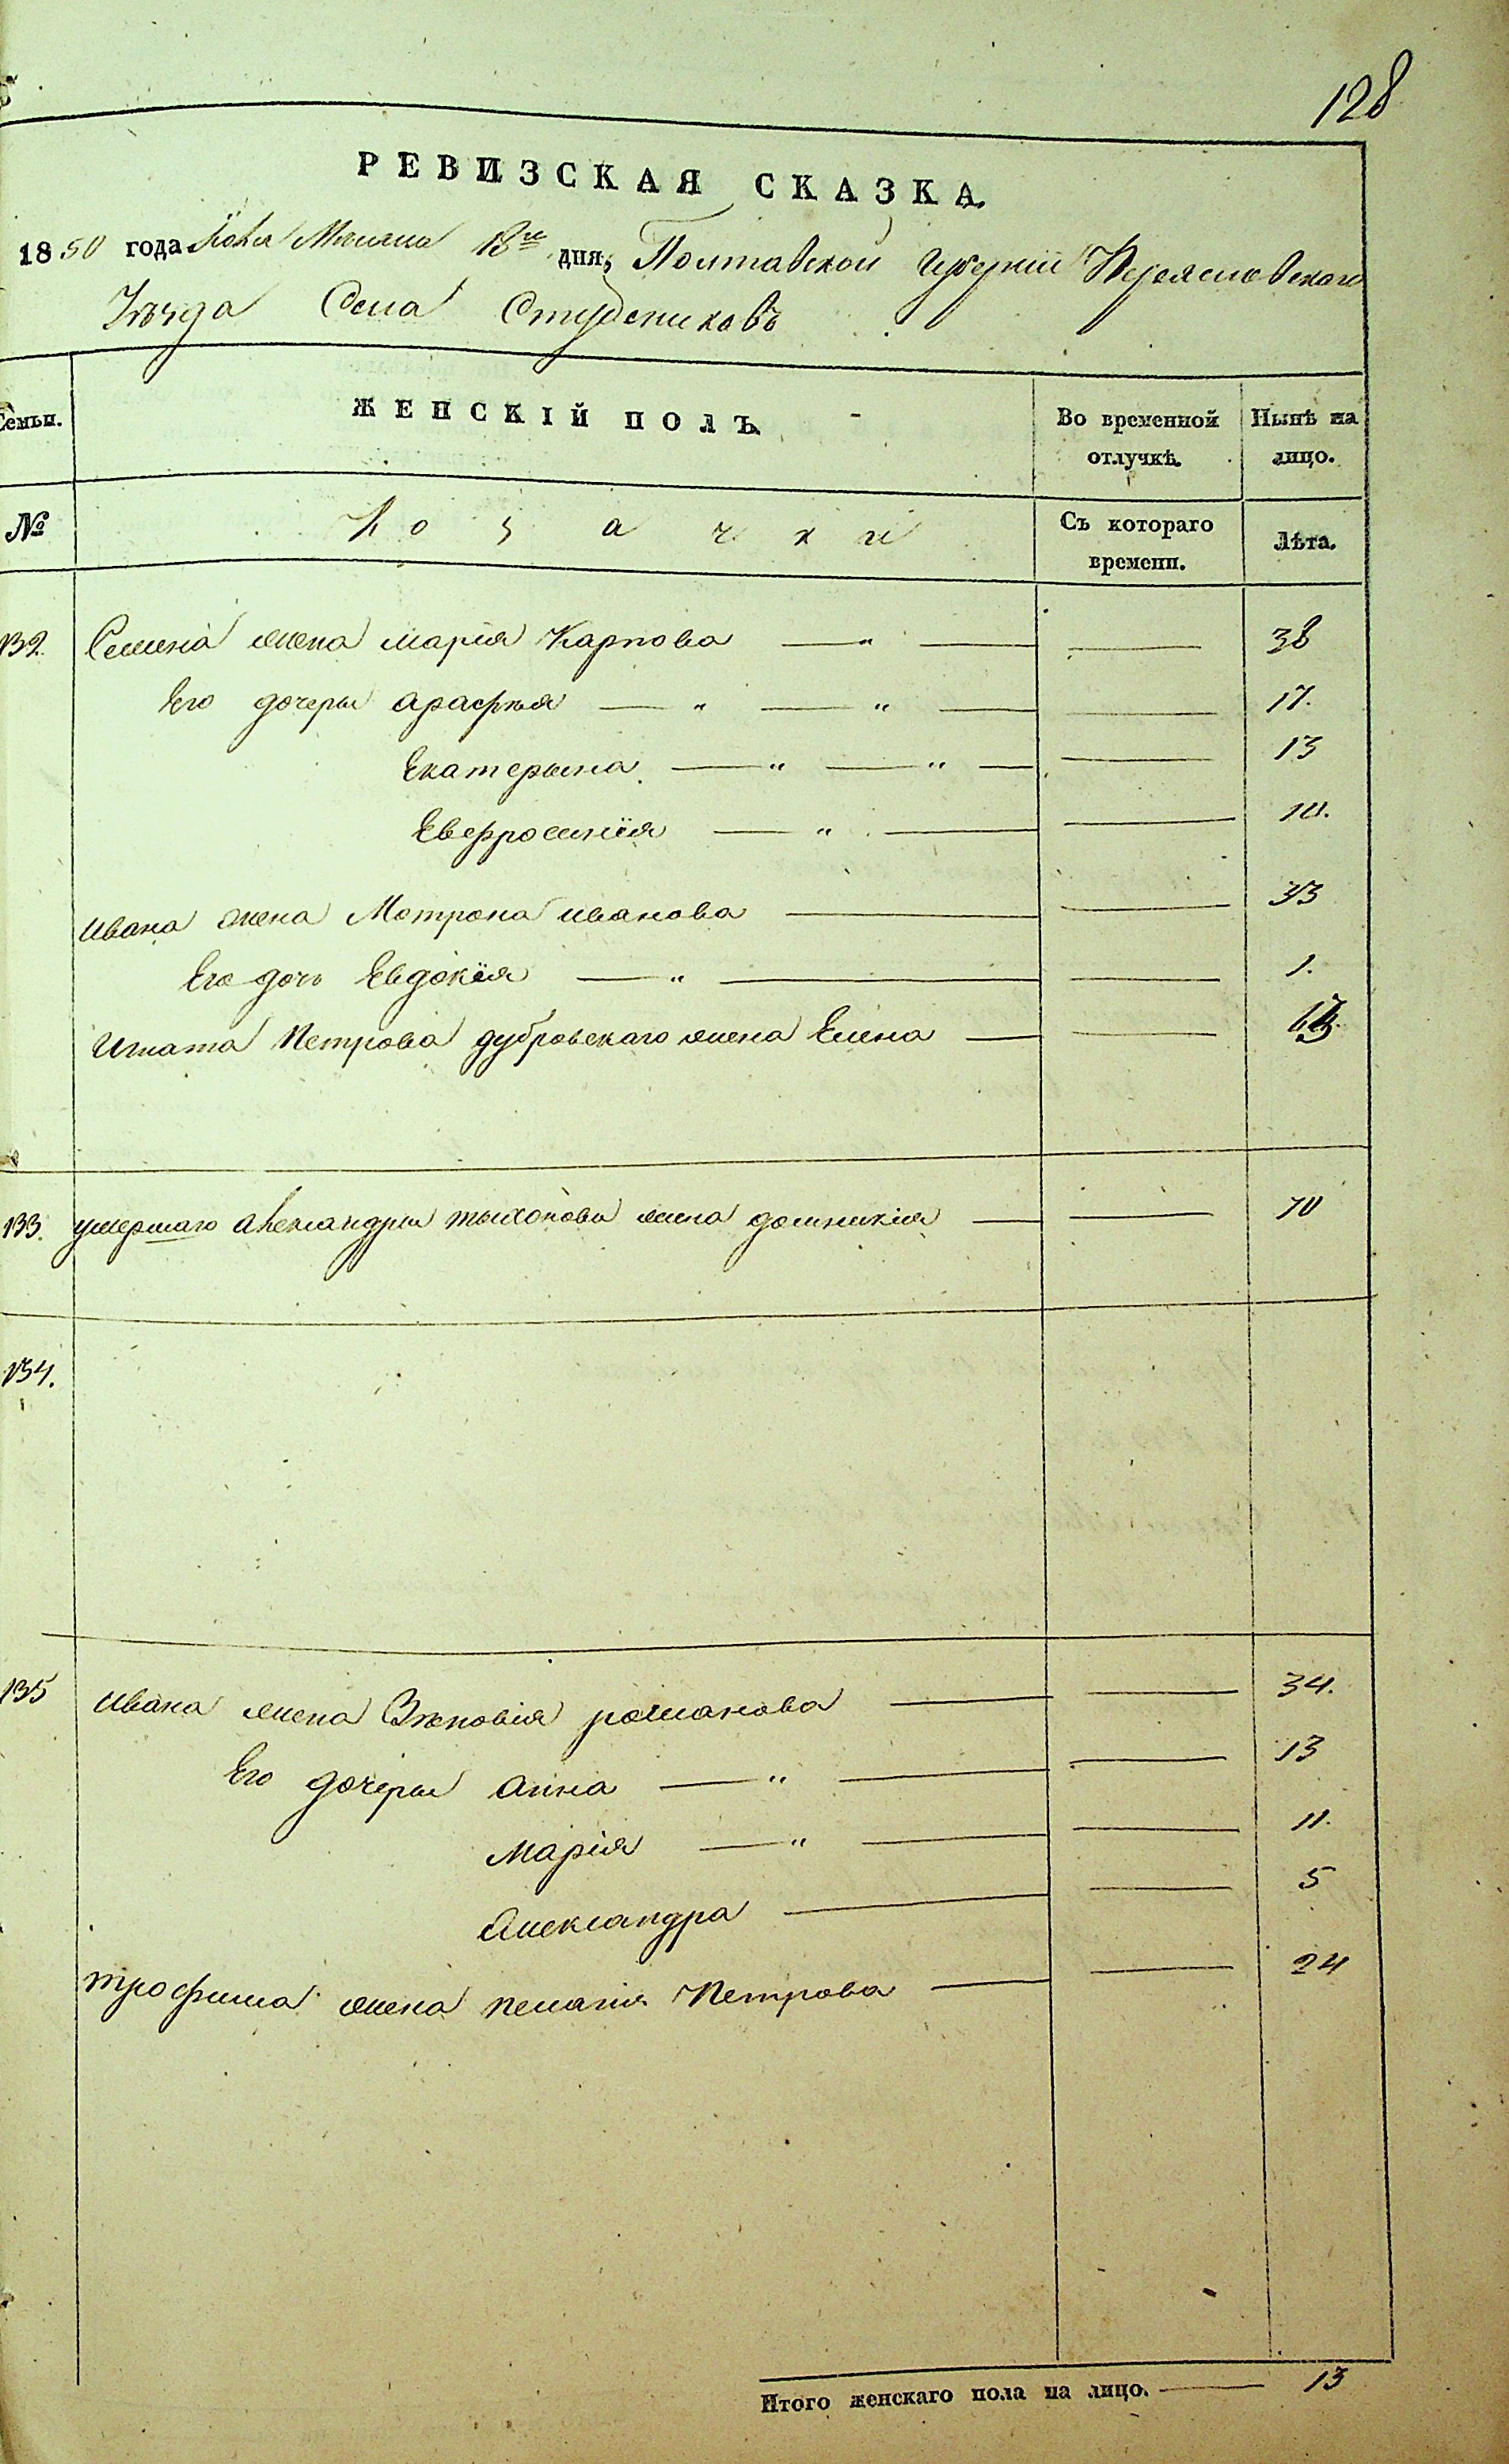 128
РЕВИЗСКАЯ СКАЗКА.
1850 года Іюня Месяца 18го дня, Полтавской Губерніи Переясловскаго
Уѣзда Села Студениковъ
Семьи. ЖЕНСКІЙ ПОЛЪ. Во временной отлучкѣ. Нынѣ на лицо.
№ Козачки Съ котораго времени. Лѣта.
132. Семена жена марія Карпова — „ — — 38
Его дочеры Агафія — „ — „ — — 17.
Екатерына — „ — „ — — 13
Евфросинія — „ — — 10.
Ивана жена Мотрона иванова — — 33
Его дочь Евдокія — „ — — 1.
Игната Петрова дубровскаго жена Елена — —
133. умершаго Александры тыхонова жена домникія — — 70
134.
135 Ивана жена Зѣновія романова — — 34.
Его дочеры анна — „ — — 13
Марія — „ — — 11.
Александра — — 5
трофима жена пелагія Петрова — — 24
Итого женскаго пола на лицо. — 13